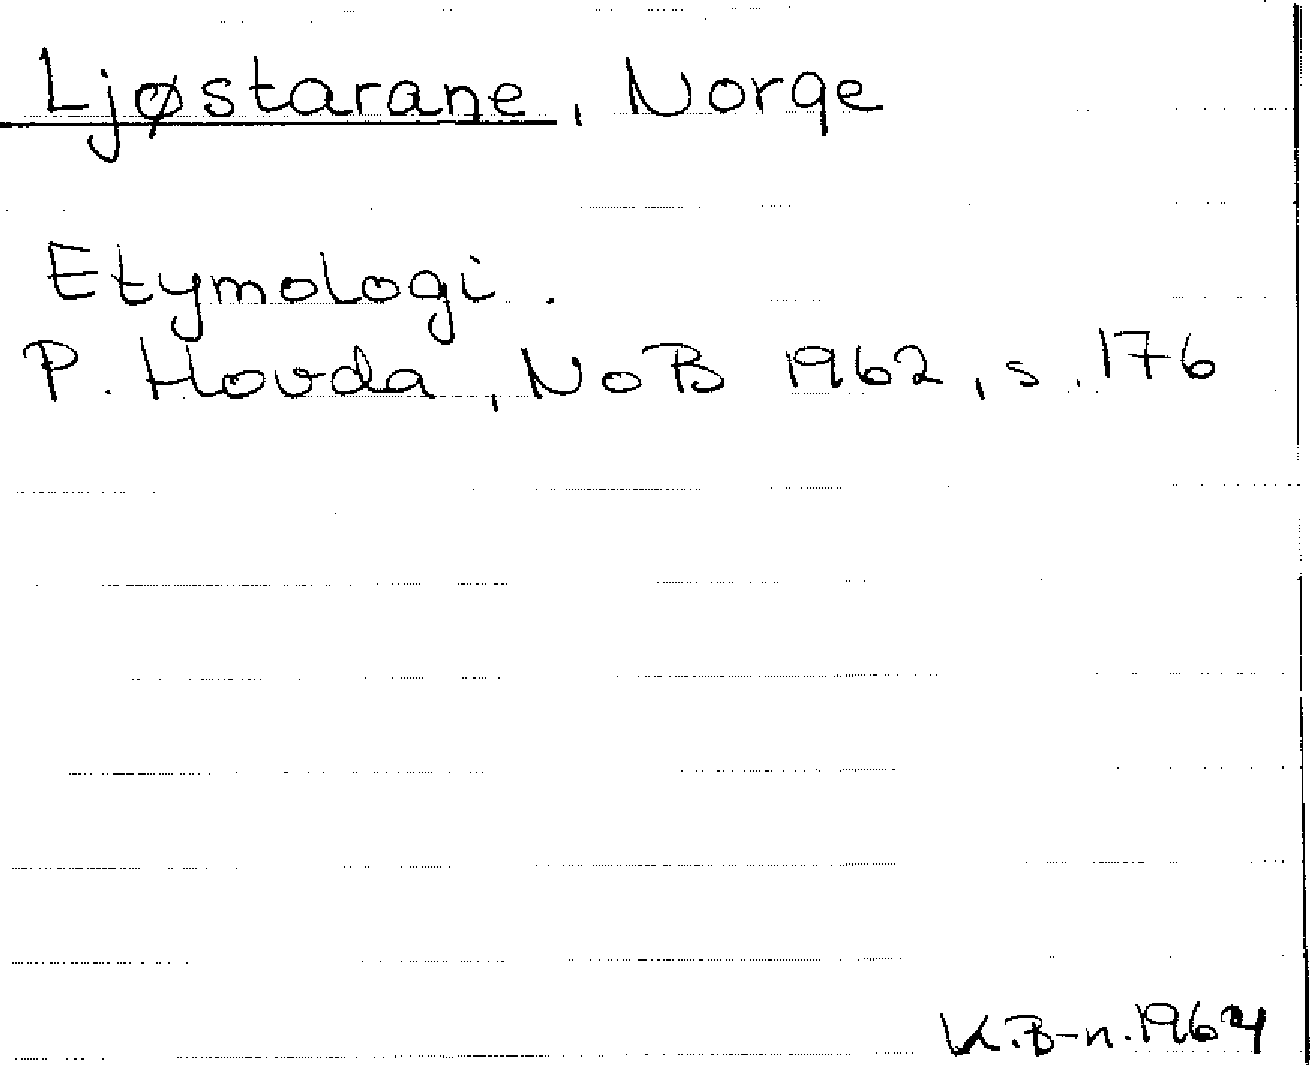 Ljøstarane, Norge
Etymologi.
P. Hovda, NoB 1962, s. 176
K.B-n. 1964